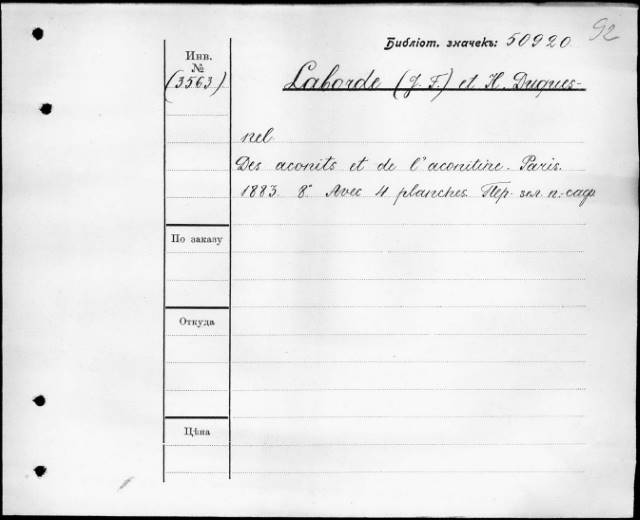 92
Библіот. значекъ: 50920
Инв.
№
(3563)
Laborde (J. F.) et H. Duques-
nel
Des aconits et de l'aconitine. Paris.
1883. 8° Avec 4 planches. Пер. зел. п.-сафь
По заказу
Откуда
Цѣна